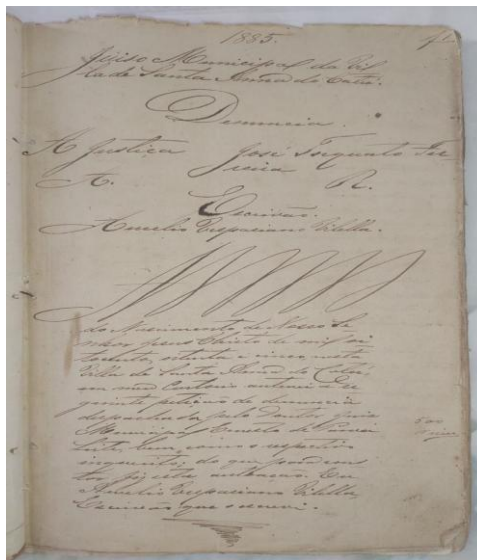 1885.
Juiso Municipal da Vil
la de Santa Anna do Catú.
Denuncia.
A Justiça José Torquato
A. R.
Escrivão.
Aurelio Vespasiano Vilella.
do Nascimento de Nosso Se
nhor Jesus Christo de mil oi
tocentos, oitenta e cinco, nesta
Villa de Santa Anna do Catú,
em meu Cartorio autuei a se
guinte petição de denuncia
despachada pelo Doutor Juiz
Municipal Ernesto de
bem como o respectivo
inquerito; do que para cons
tar fiz esta autuação. Eu
Aurelio Vespasiano Vilella,
Escrivão que escrevi.